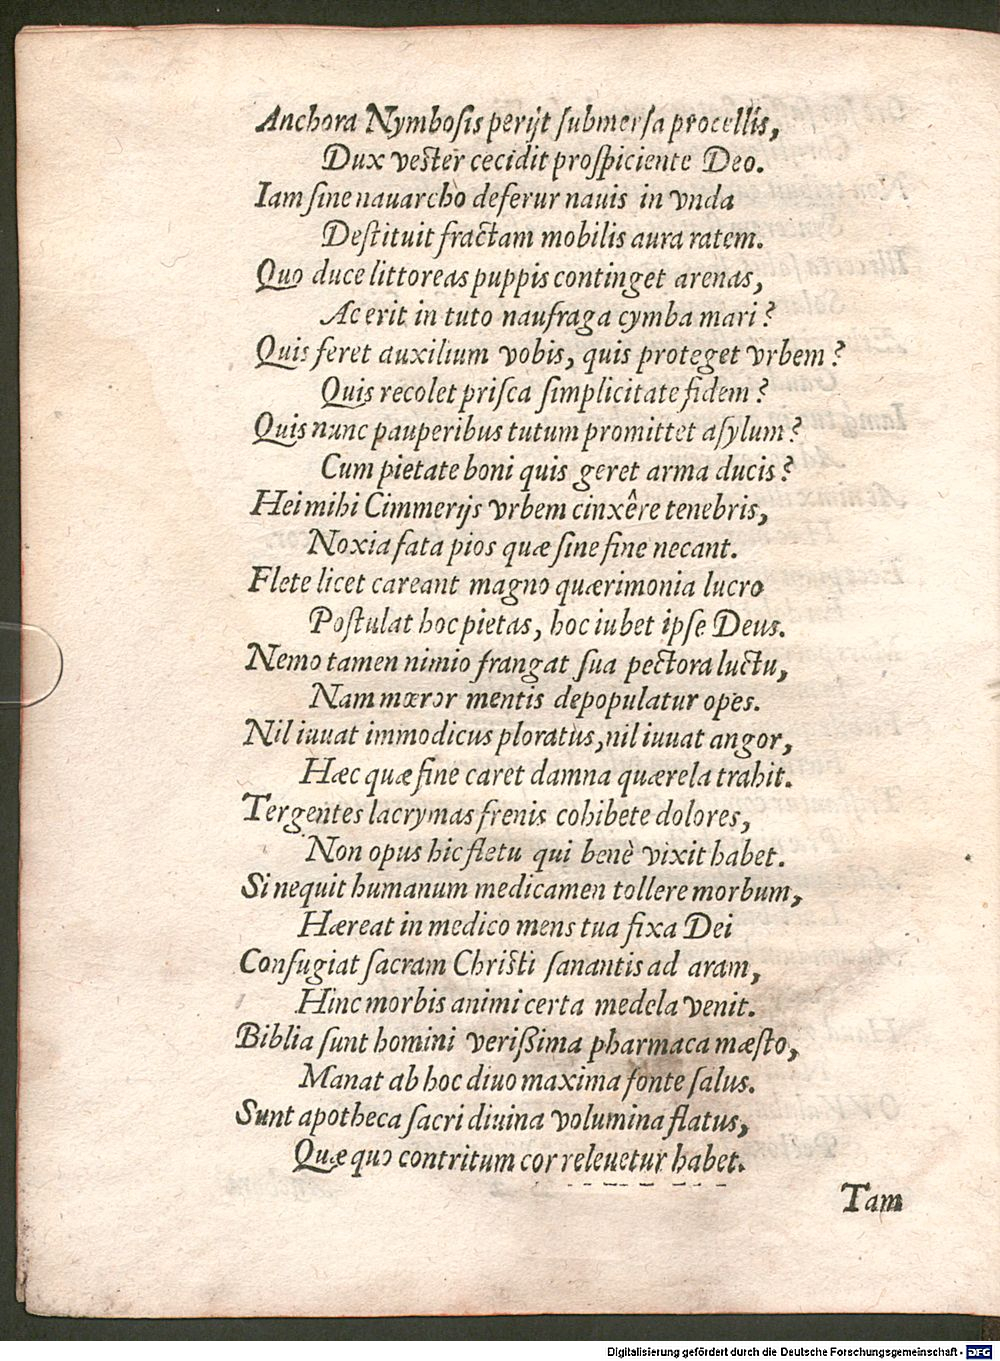 Anchora Nymbosis perijt submersa procellis,
Dux vester cecidit prospiciente Deo.
Iam sine nauarcho deferur nauis in vnda
Destituit fractam mobilis aura ratem.
Quo duce littoreas puppis continget arenas,
Ac erit in tuto naufraga cymba mari?
Quis feret auxilium vobis, quis proteget vrbem?
Quis recolet prisca simplicitate fidem?
Quis nunc pauperibus tutum promittet asylum?
Cum pietate boni quis geret arma ducis?
Hei mihi Cimmerijs vrbem cinxêre tenebris,
Noxia fata pios quæ sine fine necant.
Flete licet careant magno quærimonia lucro
Postulat hoc pietas, hoc iubet ipse Deus.
Nemo tamen nimio frangat sua pectora luctu,
Nam mœror mentis depopulatur opes.
Nil iuuat immodicus ploratus, nil iuuat angor,
Hæc quæ fine caret damna quærela trahit.
Tergentes lacrymas frenis cohibete dolores,
Non opus hic fletu qui benè vixit habet.
Si nequit humanum medicamen tollere morbum,
Hæreat in medico mens tua fixa Dei
Confugiat sacram Christi sanantis ad aram,
Hinc morbis animi certa medela venit.
Biblia sunt homini verißima pharmaca mæsto,
Manat ab hoc diuo maxima fonte salus.
Sunt apotheca sacri diuina volumina flatus,
Quæ quo contritum cor releuetur habet.
Tam
Digitalisierung gefördert durch die Deutsche Forschungsgemeinschaft - DFG